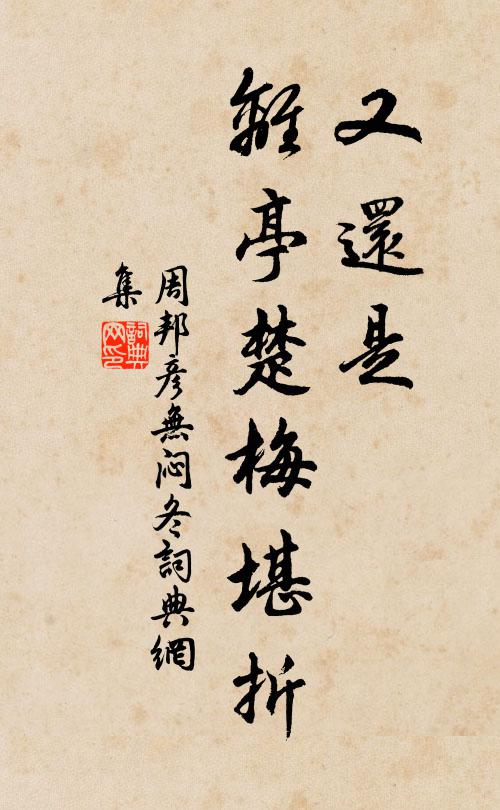 又還是
離亭楚梅堪折
周邦彥無闷冬詞典網
集
詞典
网印